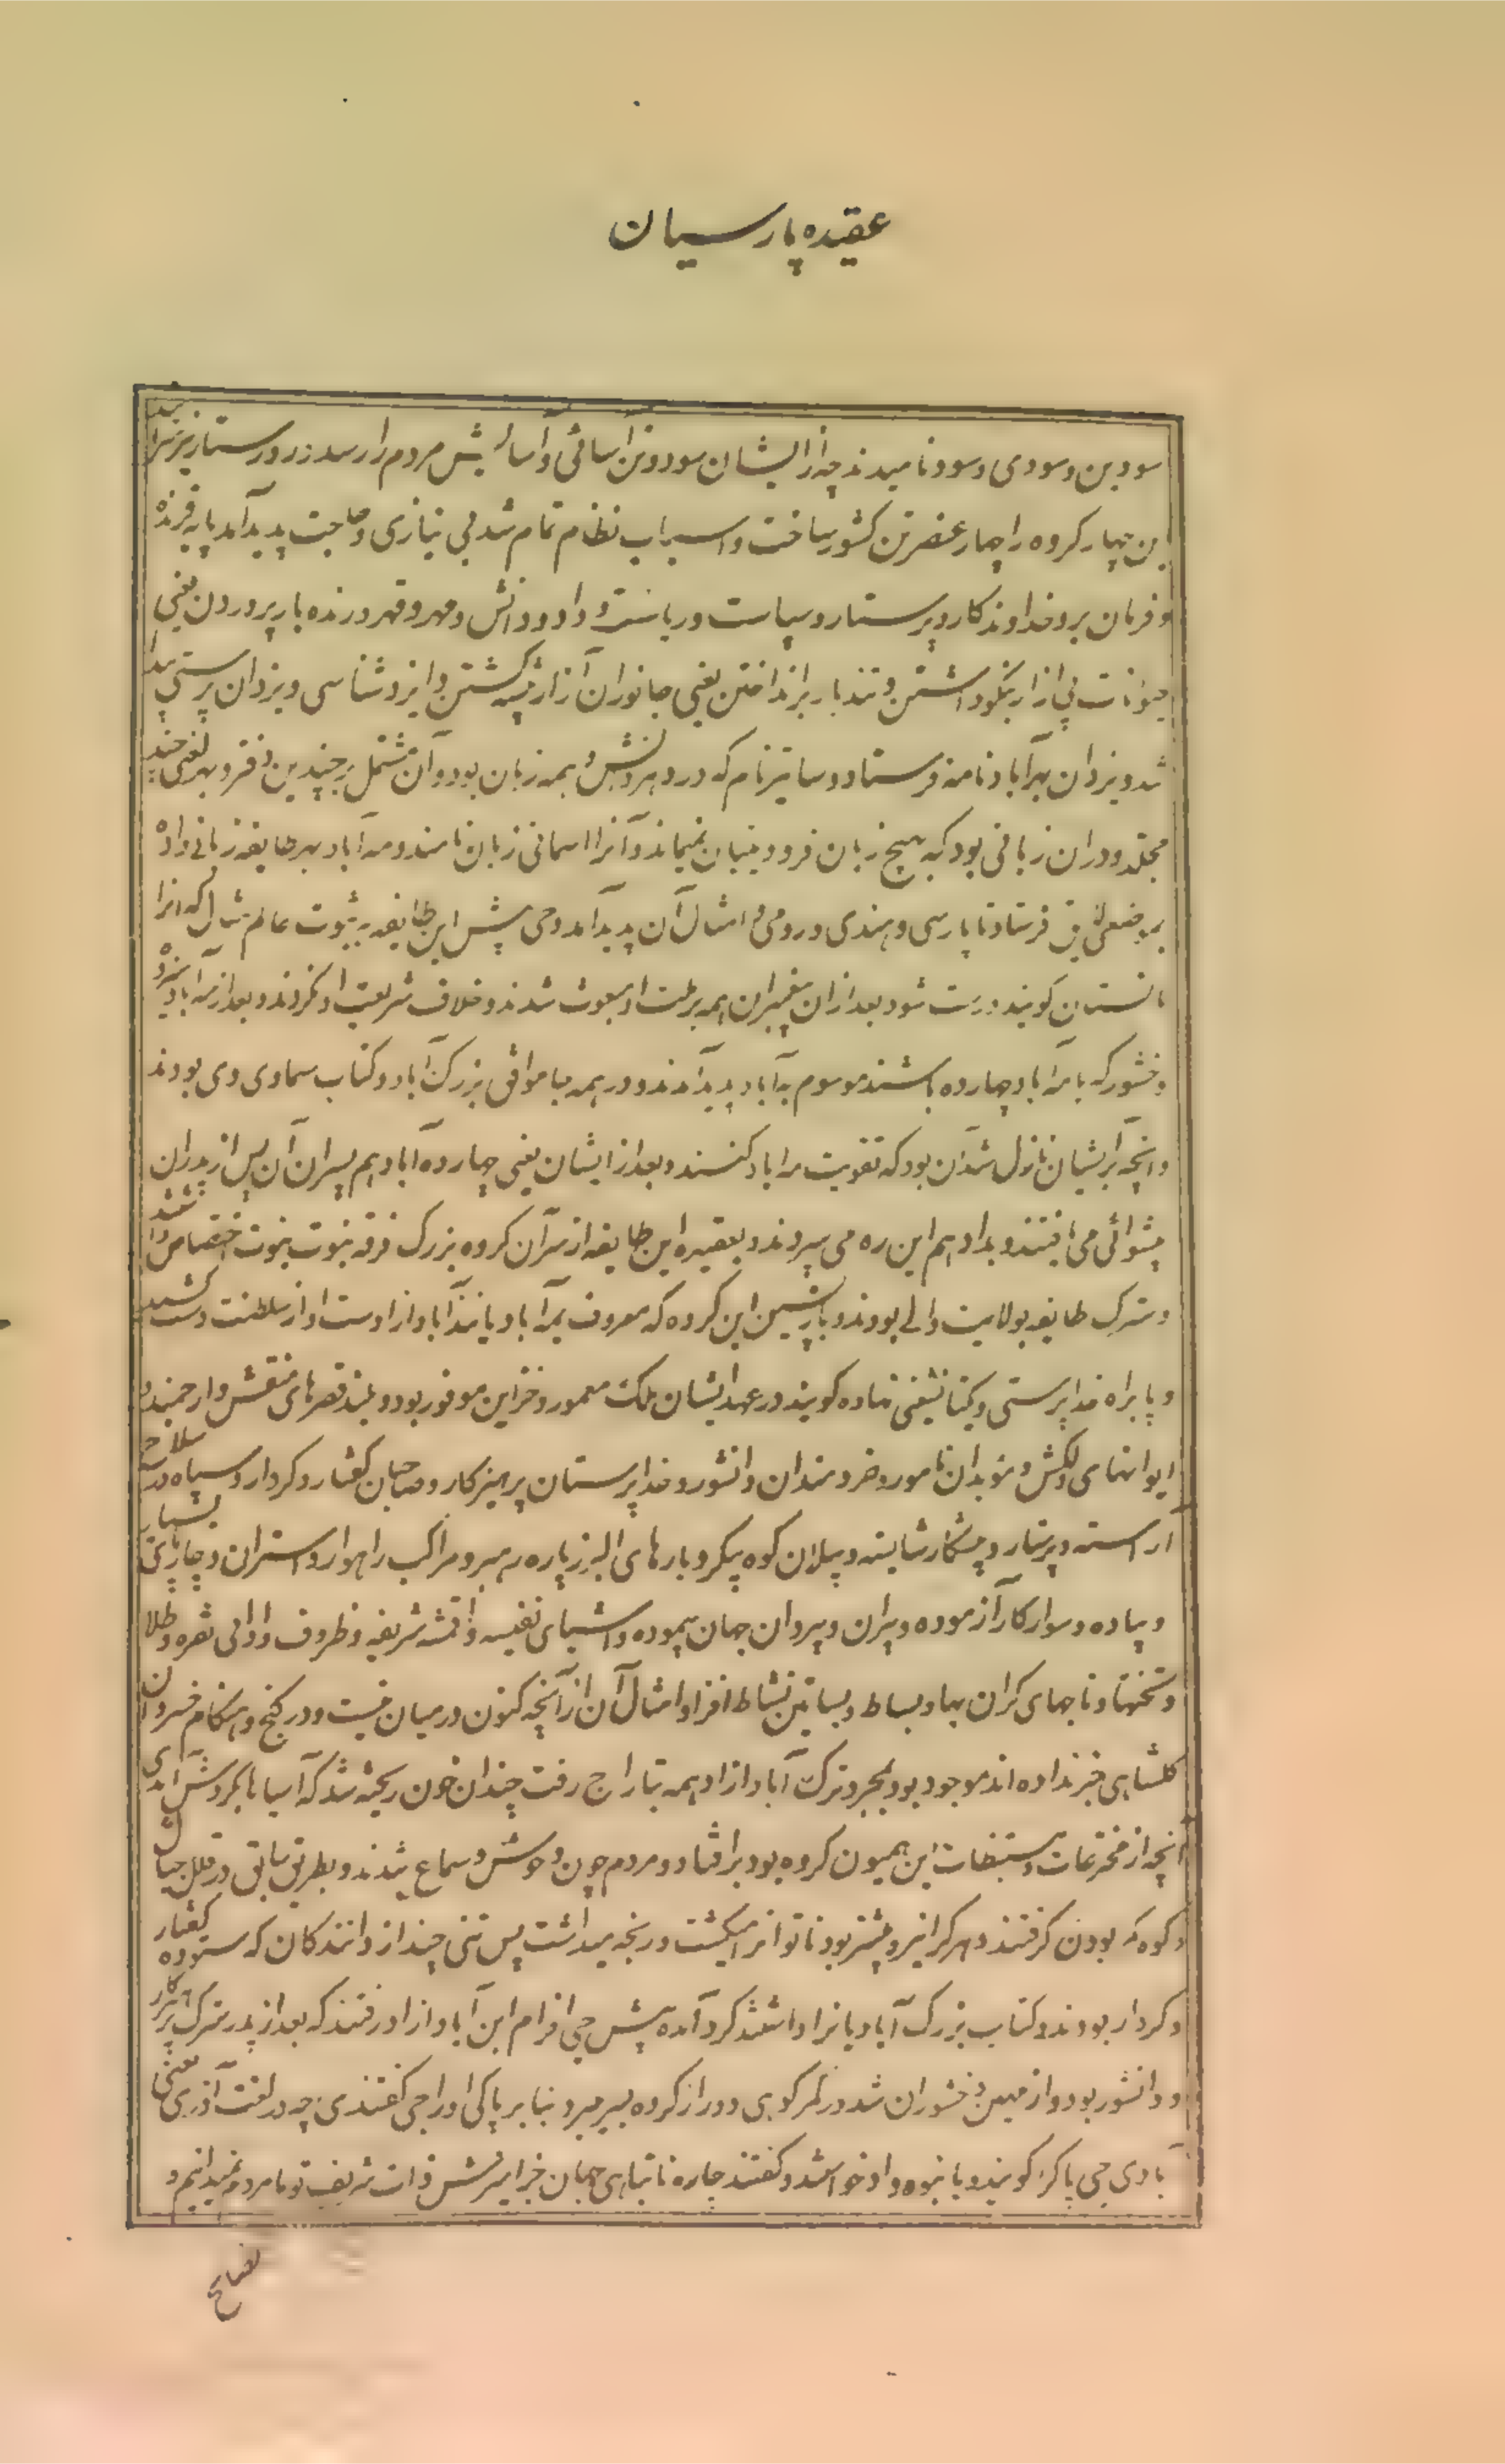 عقیده پارسیان
سودین و سودی و سود نامیدند چه از ایشان سود و تن آسائی و آسایش مردم را رسد زردرستار
این چهار کروه را چهار عنصر تن کشور ساخت و اسباب نظام تمام شد بی نیازی و حاجت پدید آمد پایه فرمانده
و فرمان بر و خداوندکار و پرستار و سیاست و ریاست و داد و دانش و مهر و قهر و زنده بار پروردن یعنی
حیوانات بی ازار نیکو داشتن و تندبار برانداختن یعنی جانوران آزار پیشه کشتن و ایزدشناسی و یزدان پرستی پیدا
شد و یزدان بمه آباد نامه فرستاد دساتیر نام که درو هر دانش و همه زبان بود و آن مشتمل بر چندین دفتر و بهر لغتی چند
مجلد و دران زبانی بود که بهیچ زبان فرودینیان نمیماند و آنرا اسمانی زبان نامند و مه آباد بهر طایفه زبانی داد
بموضعی لایق فرستاد تا پارسی و هندی و رومی و امثال آن پدید آمد وحی پیش این طایفه به ثبوت عالم مثال که انرا
مانستان کویند درست شود بعد ازان پیغمبران همه بر ملت او مبعوث شدند و خلاف شریعت او نکردند و بعد از مه آباد سیزده
وخشور که با مه آباد چهارده باشند موسوم به آباد پدید آمدند و در همه جا موافق بزرک آباد و کتاب سماوی وی بودند
و انچه بر ایشان نازل شد آن بود که تقویت مه اباد کنند و بعد از ایشان یعنی چهارده آباد هم پسران آن پس از پدران
پیشوائی می یافتند و بداد هم این ره می سپردند و بعقیده این طایفه از سرآن کروه بزرک فرقه نبوت بنبوت اختصاص داشتند
و سترک طایفه بولایت والی بودند و بازپسین این کروه که معروف بمه آبادیانند آباد ازاد ست او از سلطنت دست کشید
و پا براه خداپرستی و یکتانشینی نهاده کویند در عهد ایشان ملک معمور و خزاین موفور بود و بلند قصرهای منقش و ارجمند
ایوانهای دلکش و موبدان نامور و خردمندان دانشور و خداپرستان پرهیزکار و صاحبان کفتار و کردار و سپاه
آراسته و پرستار و پیشکار شایسته و پیلان کوه پیکر و بارهای البرز پاره رهبر و مراکب راهوار و استران و چارپای بسیار
و پیاده و سوار کار آزموده و پیران و پیروان جهان پیموده و اشیای نفیسه و اقمشه شریفه و ظروف و اوانی نقره و طلا
و تختها و تاجهای کران بها و بساط و بساتین نشاط افزا و امثال آن از آنچه کنون در میان نیست و در کنج و هنکام خسروان
کلشاهی خبر نداده اند موجود بود بمجرد ترک آباد ازاد همه بتاراج رفت چندان خون ریخته شد که آسیاها بکردش آمدی
آنچه از مخترعات و مستنبطات این همیون کروه بود برافتاد و مردم چون وحوش و سباع شدند و بطریق سابق در قلل جبال
و کوه که بودن کرفتند و هر کرا نیرو بیشتر بود ناتوانرا میکشت و رنجه میداشت پس تنی چند از دانندکان که ستوده کفتار
و کردار بودند و کتاب بزرک آبادیانرا داشتند کرد آمده پیش جی افرام ابن آباد ازاد رفتند که بعد از پدر سترک پرهیزکار
و دانشور بود و از مهین وخشوران شد در کمر کوهی دور از کروه بسر میبرد بنا بر پاکی او را جی کفتندی چه در لغت آذری یعنی
آبادی جی پاک را کویند و بانبوه داد خواستند و کفتند چاره تباهی جهان جز آمیزش ذات شریف تو با مردم نمیدانیم و
نصایح